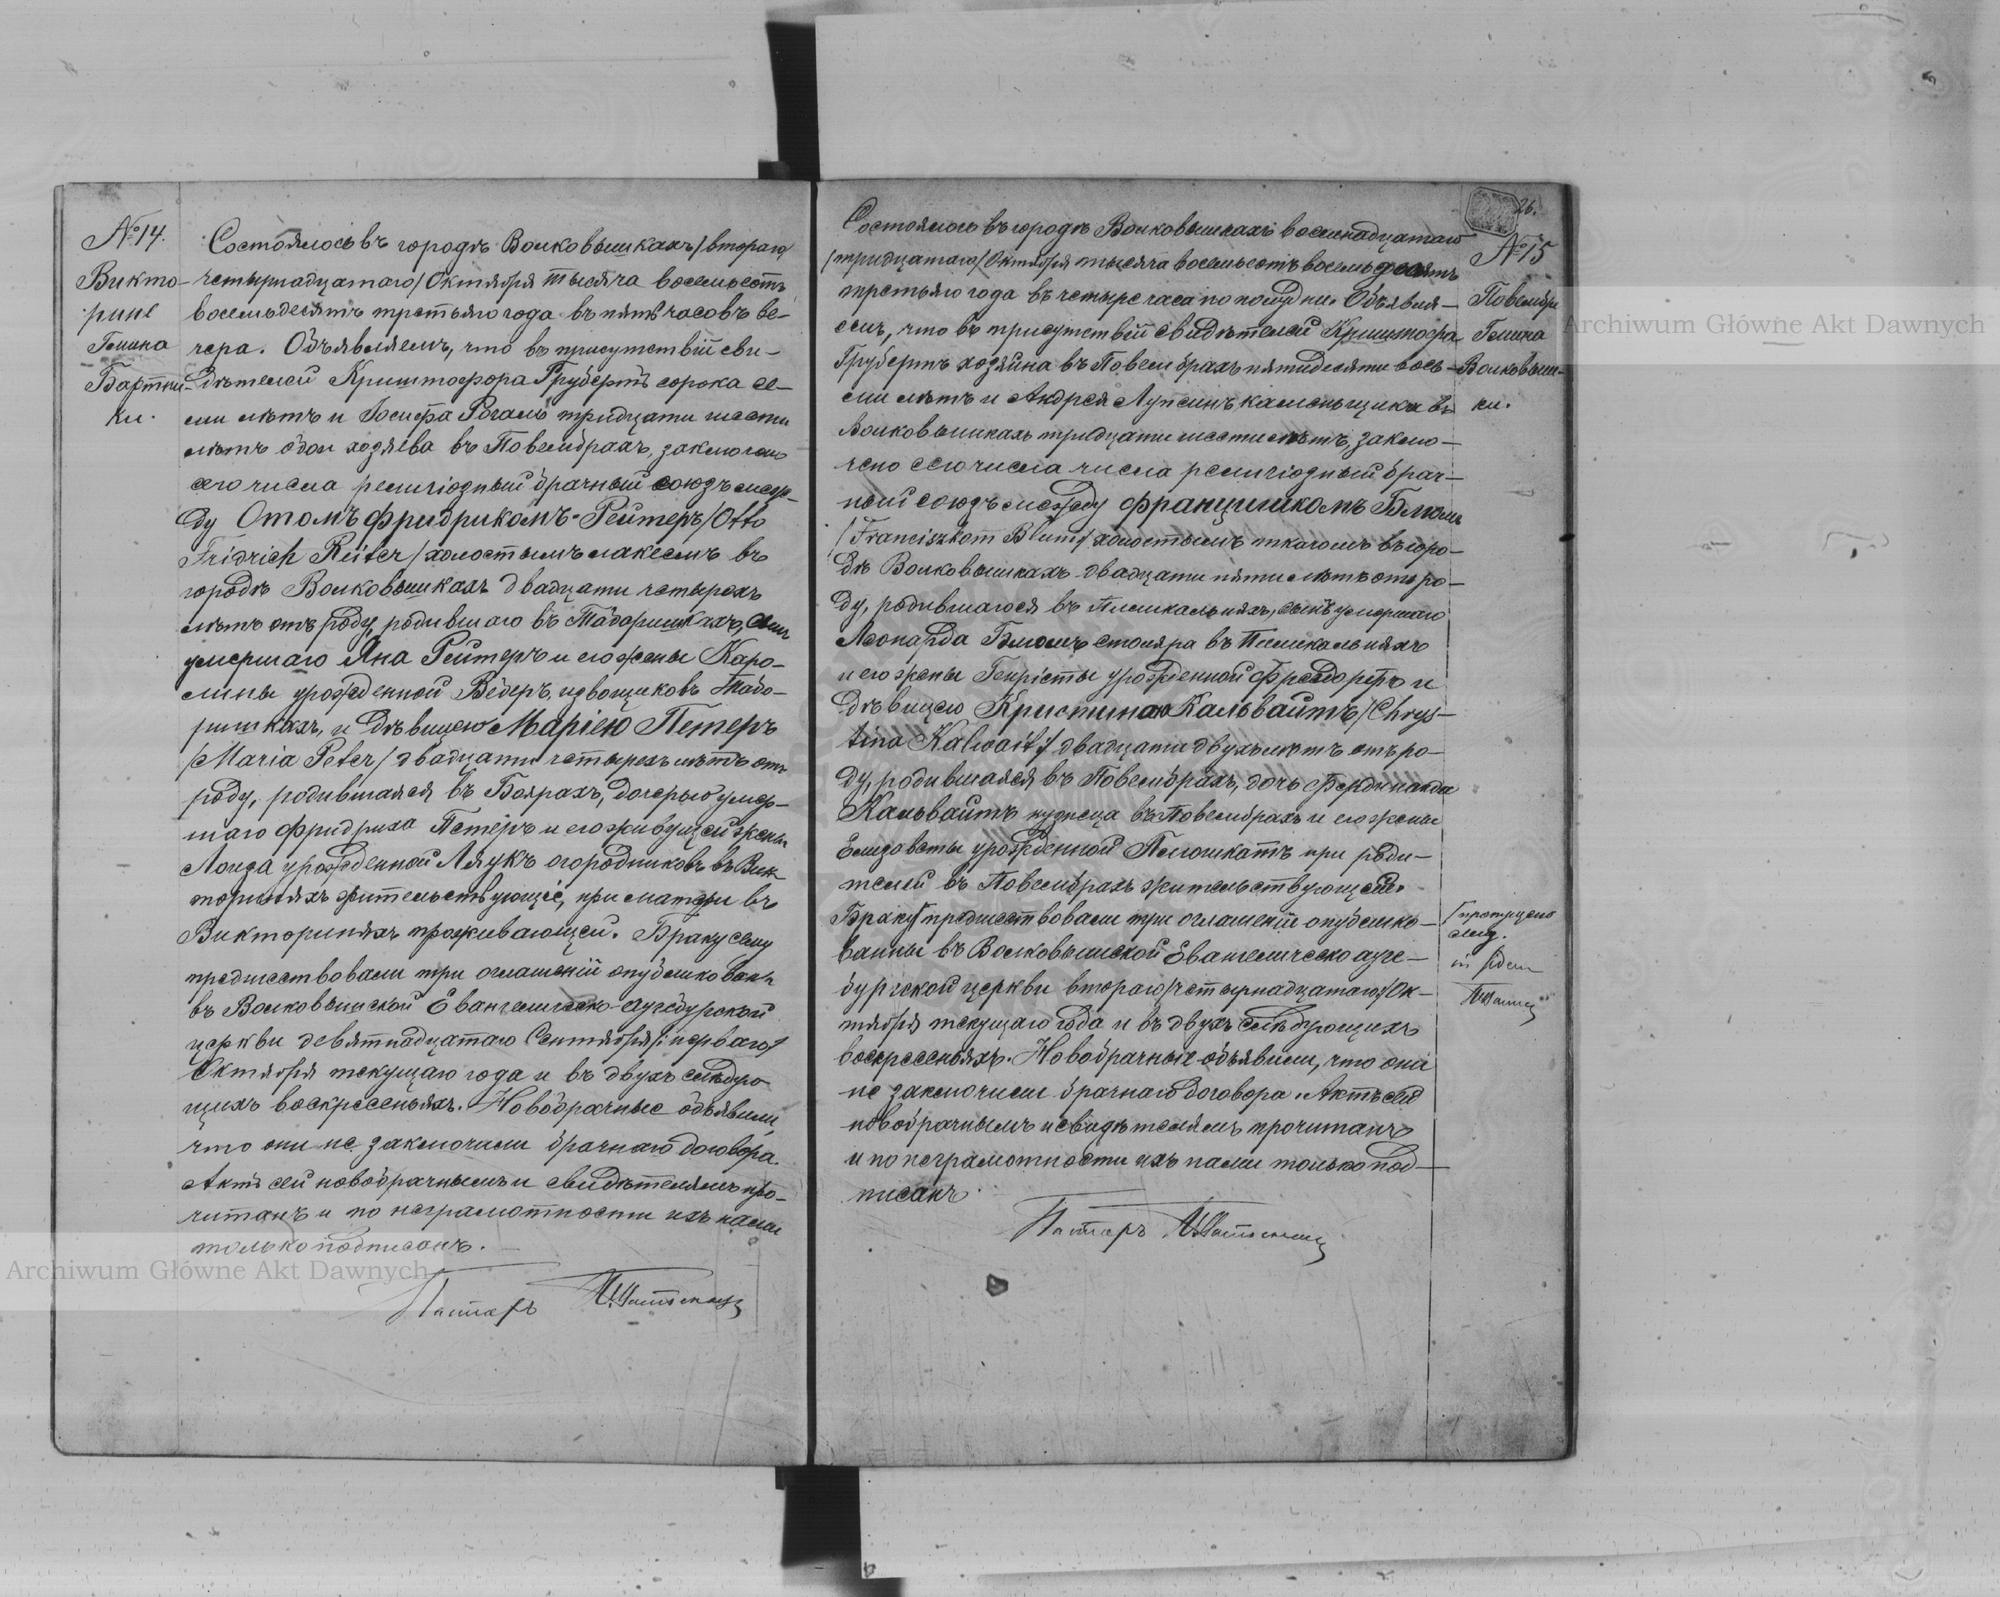 № 14.
Викто-
рине
Гмина
Бартни-
ки.
Состоялось въ городѣ Волковышкахъ /втораго/
четырнадцатаго/ Октября тысяча восемьсотъ
восемьдесятъ третьяго года въ пять часовъ ве-
чера. Объявляемъ, что въ присутствіи сви-
дѣтелей Криштофора Грубертъ сорока се-
ми лѣтъ и Іосифа Рогаль тридцати шести
лѣтъ обои хозяева въ Повембрахъ, заключенъ
сего числа религіозный брачный союзъ меж-
ду Отомъ Фридрикомъ-Рейтеръ /Otto
Fridrich Reiter/ холостымъ лакеемъ въ
городѣ Волковышкахъ двадцати четырехъ
лѣтъ отъ роду, родившаго въ Таборишкахъ, сынъ
умершаго Яна Рейтеръ и его жены Каро-
лины урожденной Веберъ, извощиковъ Табо-
ришкахъ, и дѣвицею Маріею Петеръ
/Maria Peter/ двадцати четырехъ лѣтъ отъ
роду, родившаяся въ Боярахъ, дочерью умер-
шаго Фридриха Петеръ и его живущей жены
урожденной Ляукъ огородниковъ въ Вик-
ториняхъ жительствующіе, при матери въ
Викториняхъ проживающей. Браку сему
предшествовали три оглашеніи опубликованы
въ Волковышской Евангелическо-аугсбургской
церкви девятнадцатаго Сентября /: перваго/
Октября текущаго года и въ двухъ слѣдую-
щихъ воскресеньяхъ. Новобрачные объявили,
что они не заключили брачнаго договора.
Актъ сей новобрачнымъ и свидѣтелямъ про-
читанъ и по неграмотности ихъ нами
только подписанъ.
Пасторъ
26.
№ 15
Повембры
Гмина
Волковыш-
ки.
Состоялось въ городѣ Волковышкахъ восемнадцатаго
/тридцатаго/ Октября тысяча восемьсотъ восемьдесятъ
третьяго года въ четыре часа по полудни. Объявля-
емъ, что въ присутствіи свидѣтелей Криштофа
Грубертъ хозяина въ Повембрахъ пятидесяти вось-
ми лѣтъ и Андрея Лупсинъ каменьщика въ
Волковышкахъ тридцати шести лѣтъ, заклю-
чено сего числа числа религіозный брач-
ный союзъ между Францишкомъ Блюмъ
/Franciszkom Blum/ холостымъ ткачомъ въ горо-
дѣ Волковышкахъ двадцати пяти лѣтъ отъ ро-
ду, родившагося въ Пишкальняхъ, сынъ умершаго
Леонарда Блюмъ столяра въ Пишкальняхъ
и его жены Генріеты урожденной и
дѣвицею Кристиною Кальвайтъ /Chrys-
tina Kalwait/ двадцати двухъ лѣтъ отъ ро-
ду, родившаяся въ Повембрахъ, дочь Фердинанда
Кальвайтъ кузнеца въ Повембрахъ и его жены
Елизаветы урожденной при роди-
телей въ Повембрахъ жительствующей.
Браку / предшествовали три оглашеніи опублико-
ванны въ Волковышской Евангелическо аугс-
бургской церкви втораго /четырнадцатаго/ Ок-
тября текущаго года и въ двухъ слѣдующихъ
воскресеньяхъ. Новобрачные объявили, что они
не заключили брачнаго договора. Актъ сей
новобрачнымъ и свидѣтелямъ прочитанъ
и по неграмотности ихъ нами только под-
писанъ.
/ пропущено
сему.
Пасторъ
Archiwum Główne Akt Dawnych
Archiwum Główne Akt Dawnych